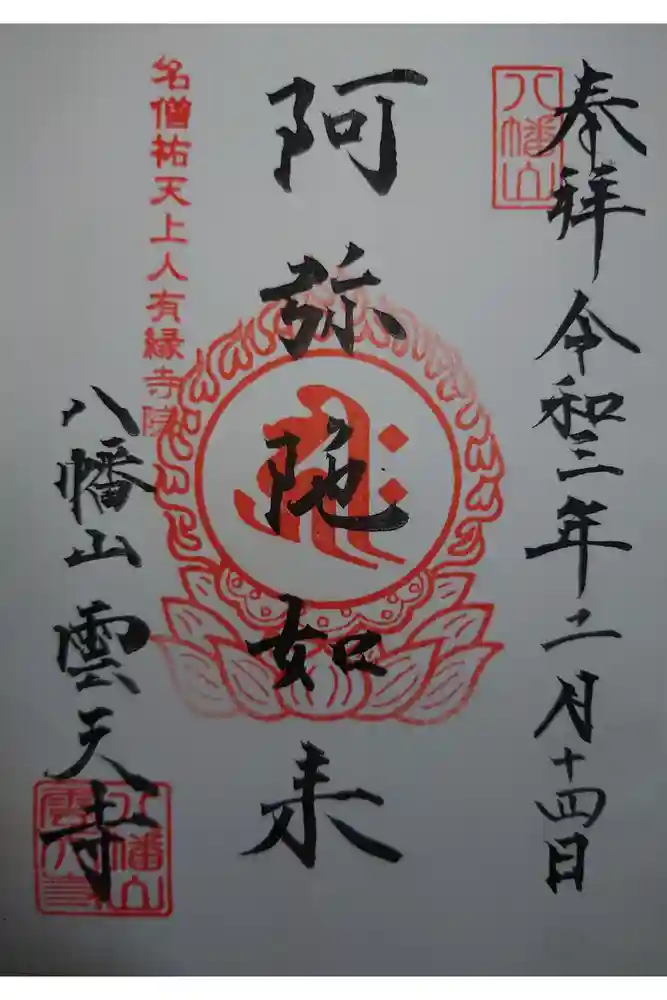 奉祥 令和三年二月十四日
八幡山
阿弥陀如来
名僧祐天上人有縁寺院
八幡山 雲天寺